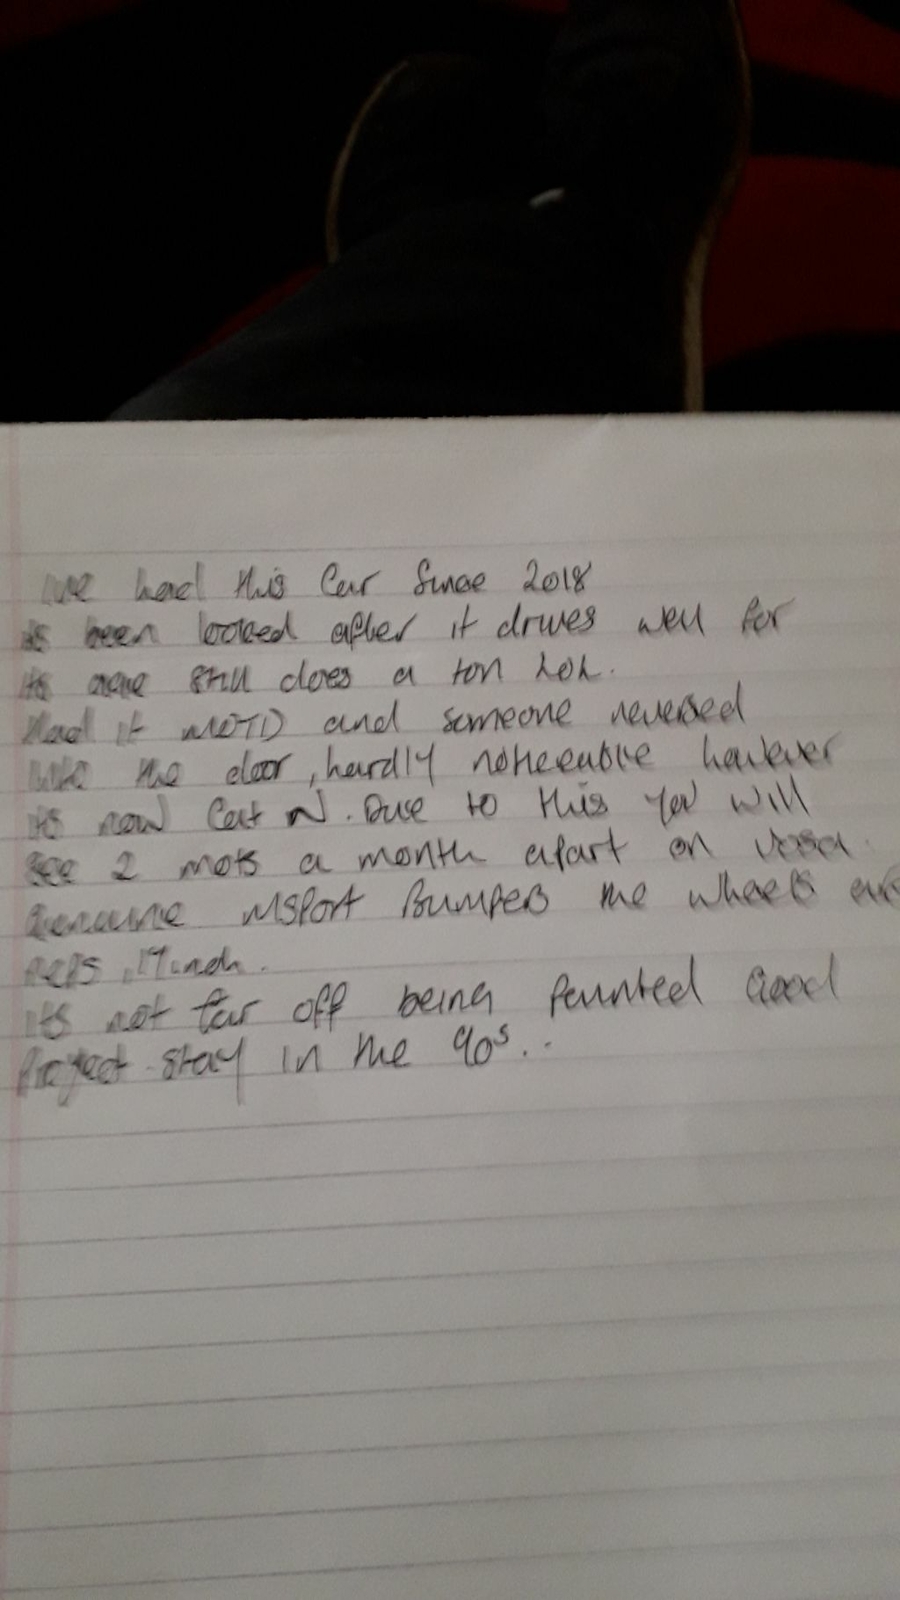 Ive had this Car Since 2018
its been looked after it drives well for
its age still does a ton LOL.
Had it MOTD and someone reversed
into the door, hardly noticeable however
its now Cat N. Due to this you will
see 2 mots a month apart on
Genuine MSPort Bumpers the wheels are
reps, inch.
its not far off being painted Good
Project. stay in the 90s..